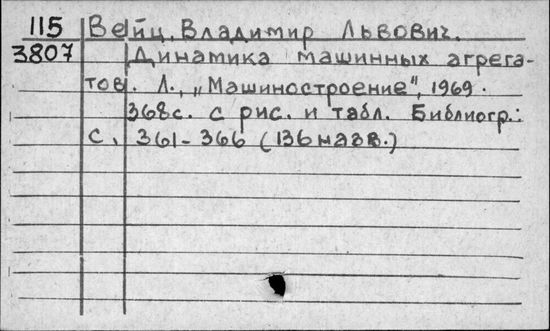 115 Вейц, Владимир Львович.
3807 Динамика машинных агрега-
тов. Л., „Машиностроение", 1969.
368с. с рис. и табл. Библиогр.:
с. 361-366 (136 назв.)